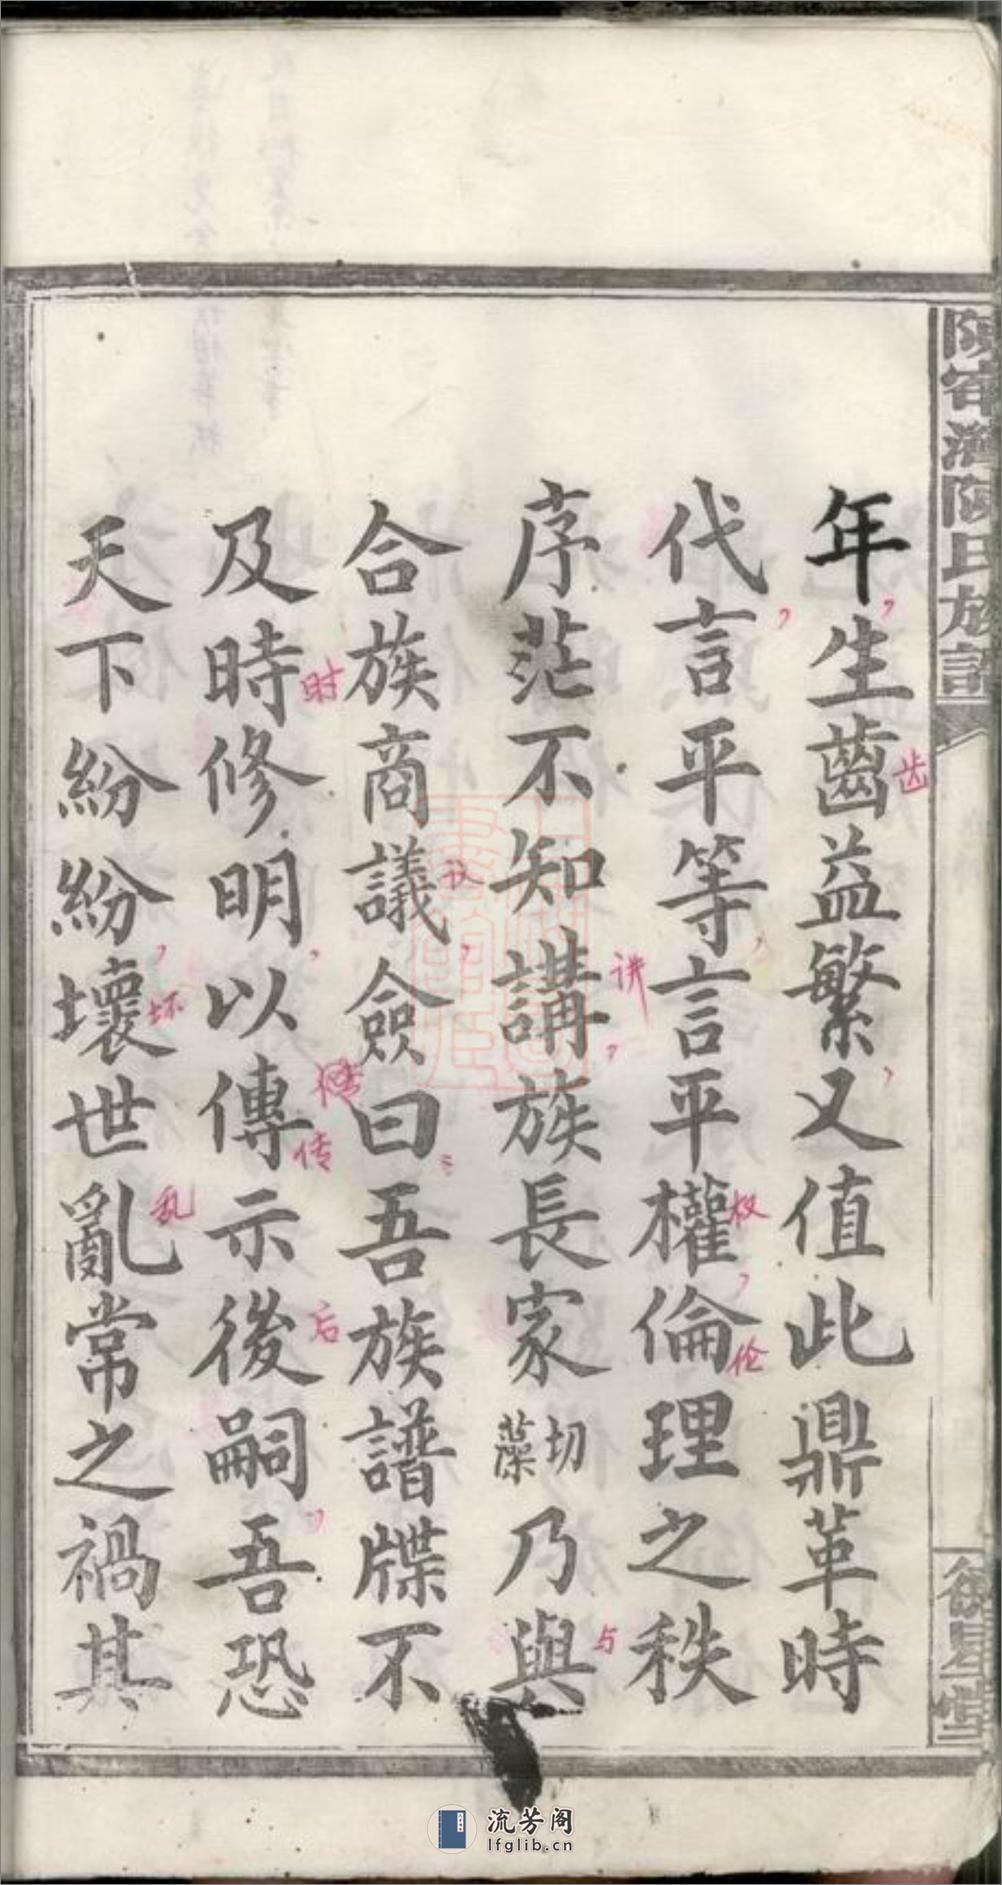 年生齒益繁又值此鼎革時
代言平等言平權倫理之秩
序茫不知講族長家切藻乃與
合族商議僉曰吾族譜牒不
及時修明以傳示後嗣吾恐
天下紛紛壞世亂常之禍其
齿
权
伦
讲
与
议
时
传
后
坏
乱
流芳阁
lfglib.cn